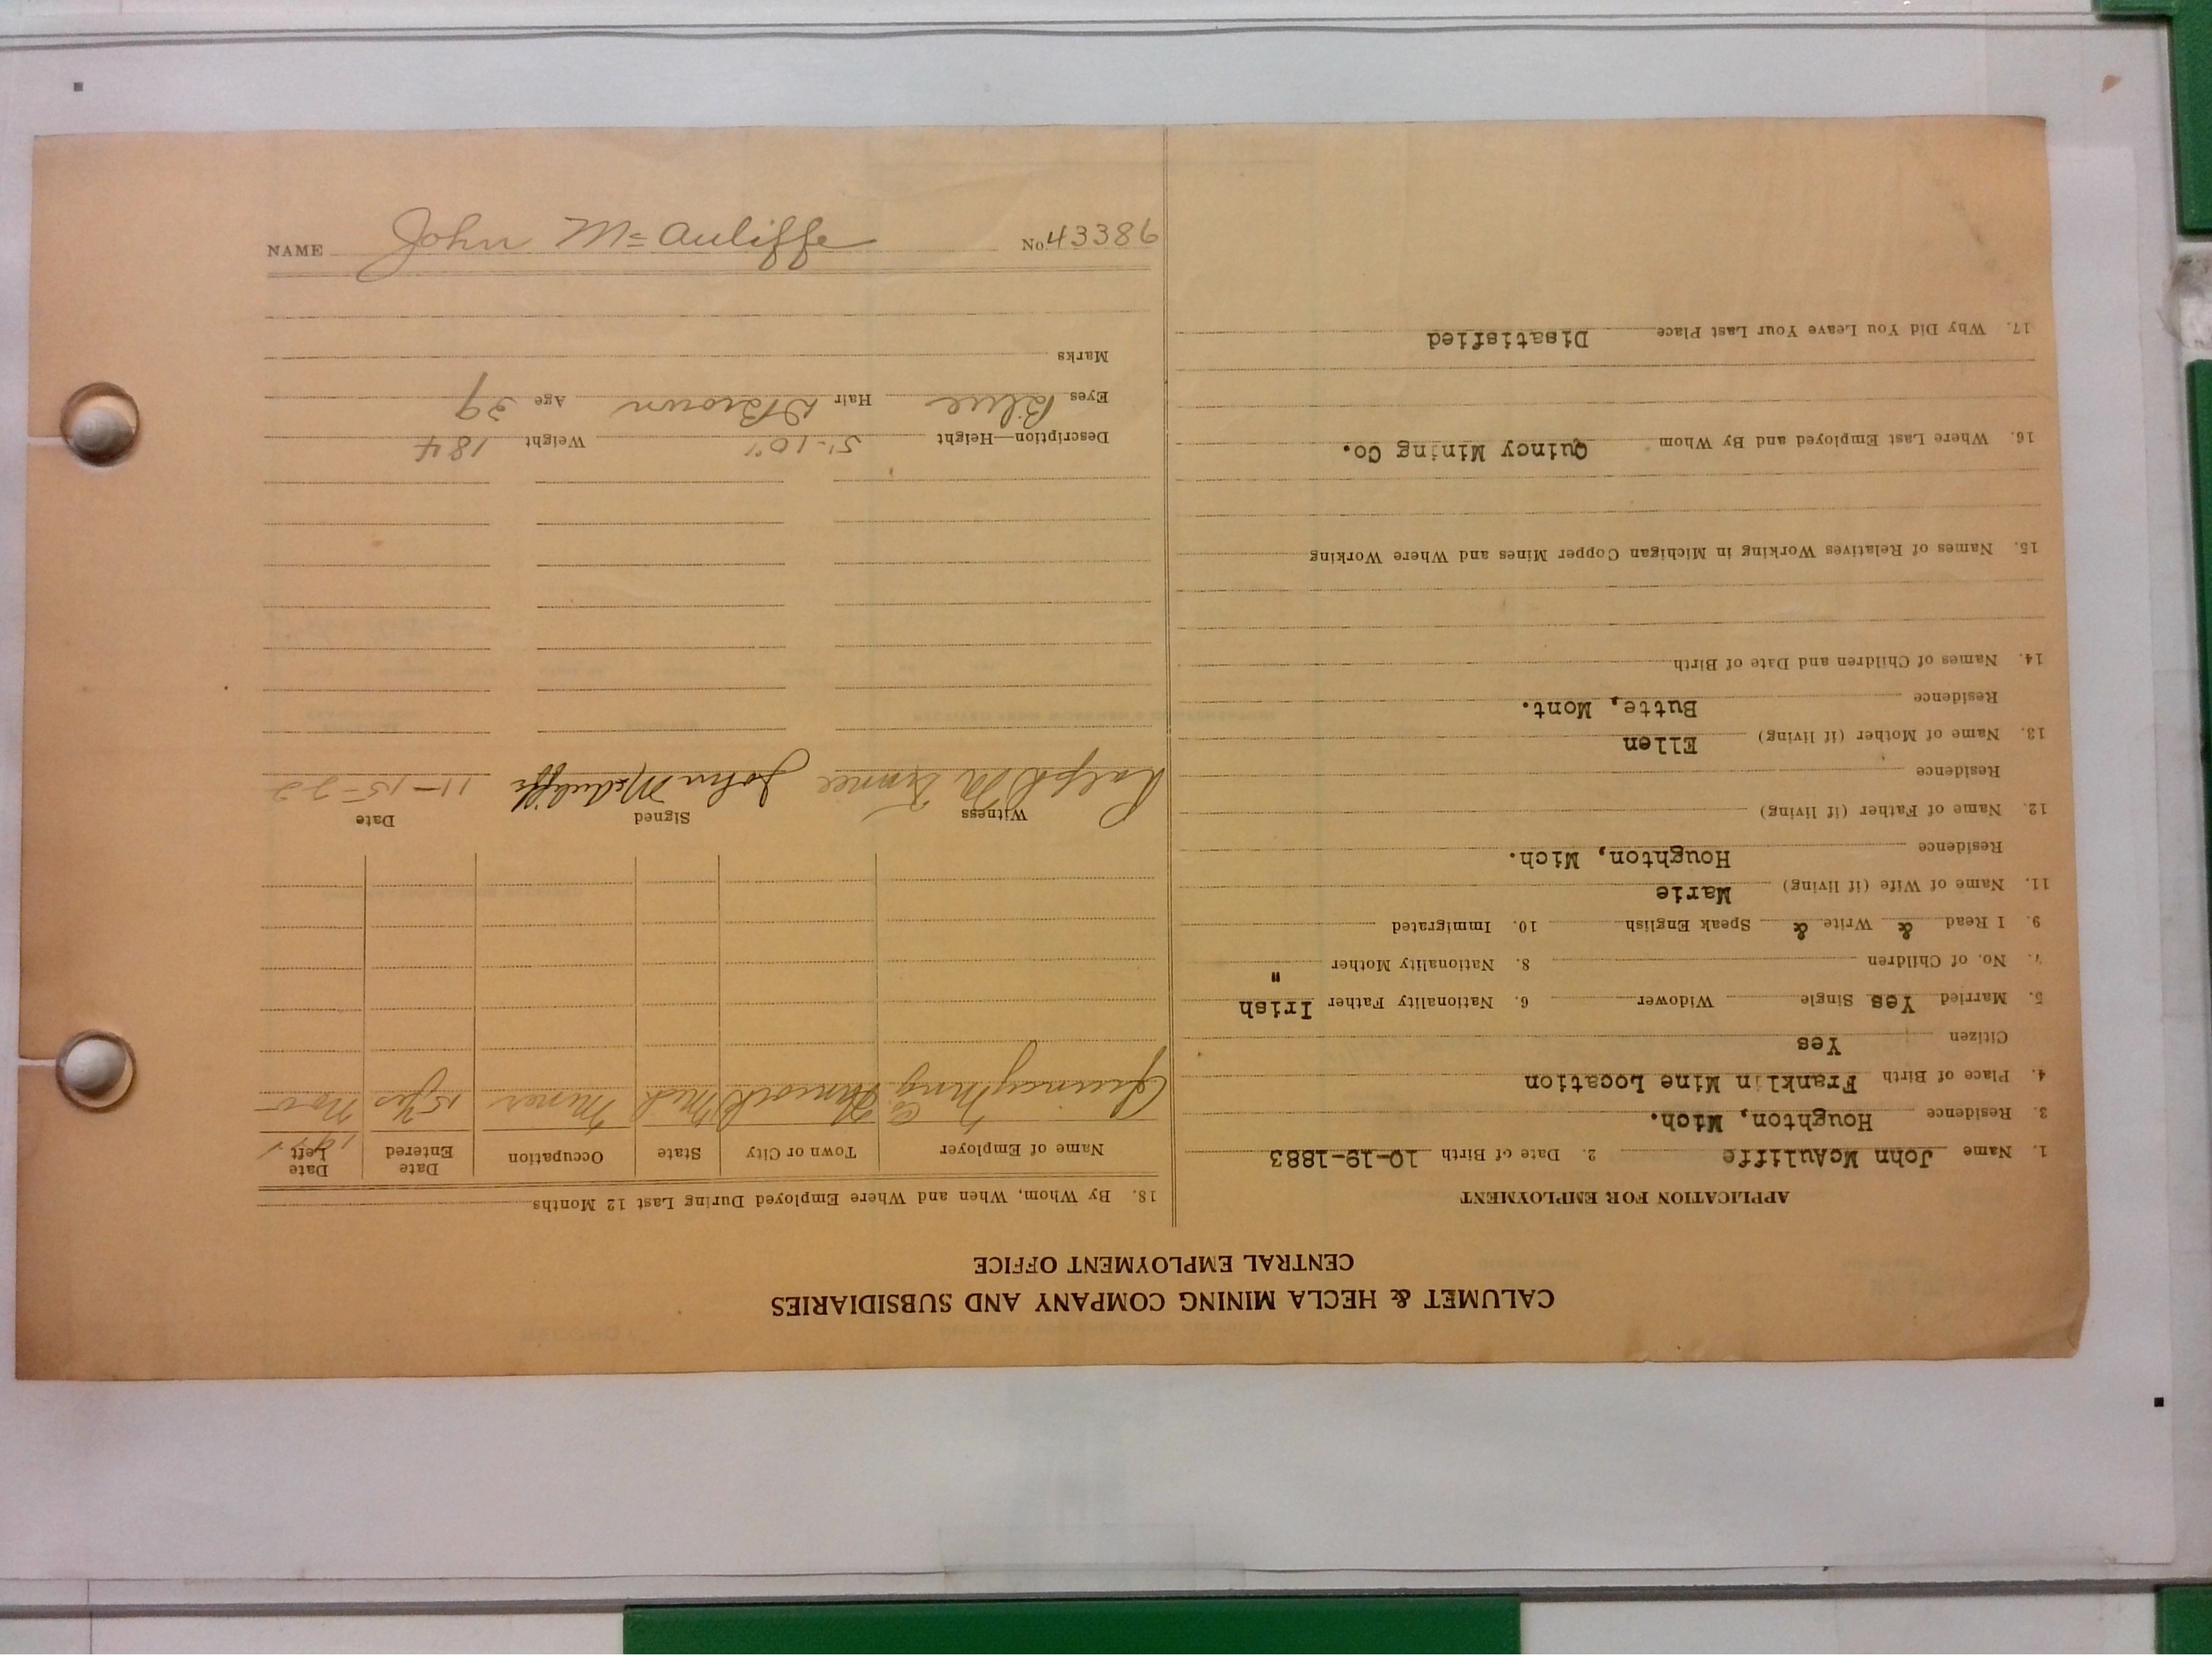 CALUMET & HECLA MINING COMPANY AND SUBSIDIARIES
CENTRAL EMPLOYMENT OFFICE
APPLICATION FOR EMPLOYMENT
1. Name John McAuliffe 2. Date of Birth 10-19-1883
3. Residence Houghton, Mich.
4. Place of Birth Franklin Mine Location
Citizen Yes
5. Married Yes Single Widower 6. Nationality Father Irish
7. No. of Children 8. Nationality Mother "
9. I Read & Write & Speak English 10. Immigrated
11. Name of Wife (if living) Marie
Residence Houghton, Mich.
12. Name of Father (if living)
Residence
13. Name of Mother (if living) Ellen
Residence Butte, Mont.
14. Names of Children and Date of Birth
15. Names of Relatives Working in Michigan Copper Mines and Where Working
16. Where Last Employed and By Whom Quincy Mining Co.
17. Why Did You Leave Your Last Place Disatisfied
18. By Whom, When and Where Employed During Last 12 Months
Name of Employer Town or City State Occupation Date Entered Date Left
Quincy Mng Co Hancock Mich Miner 15 yrs Nov
Witness Signed Date
Ralph John McAuliffe 11-15-22
Description—Height 5'-10" Weight 184
Eyes Blue Hair D Brown Age 39
Marks
NAME John McAuliffe No. 43386